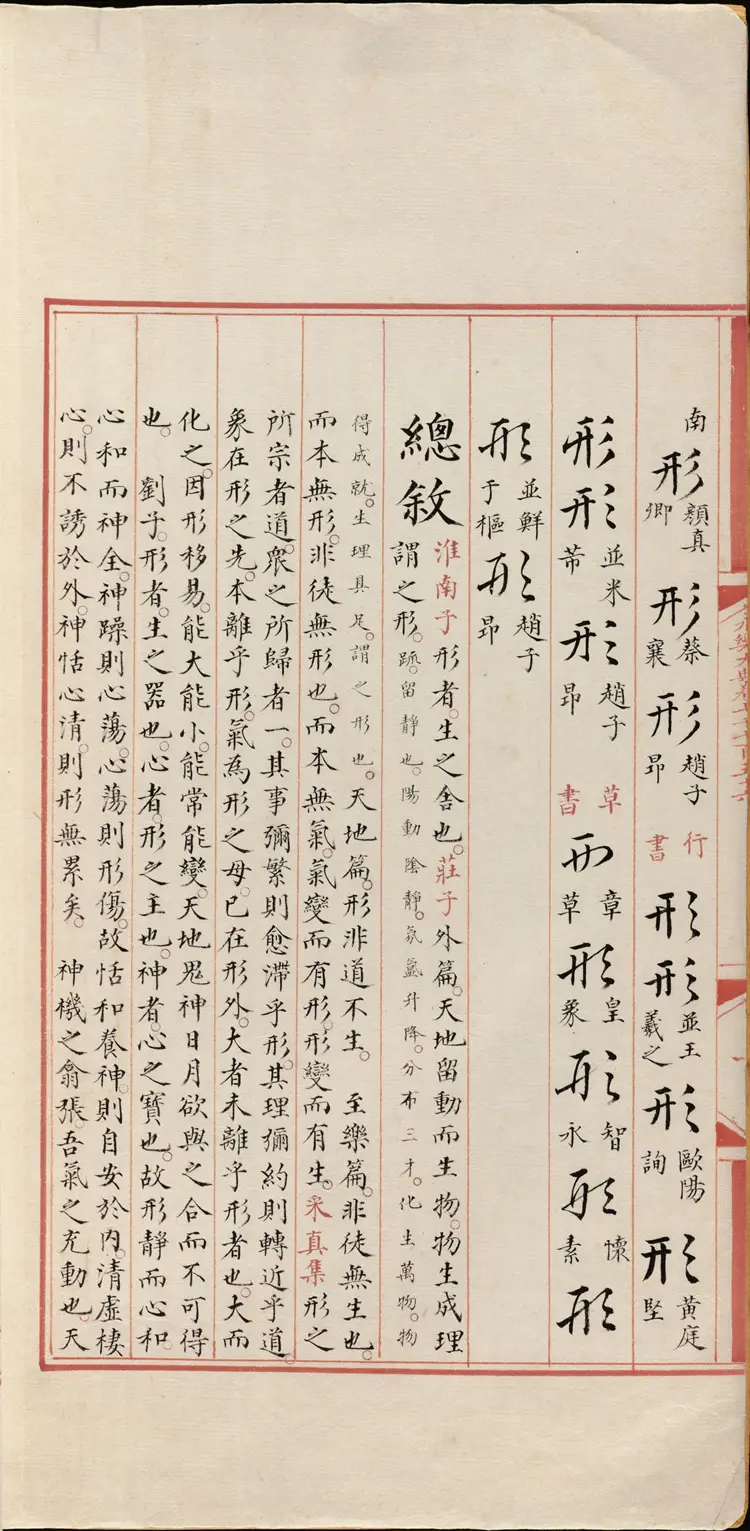 南形顏真卿形蔡襄形趙子昂行書形形並王羲之形歐陽詢形黃庭堅
形形並米芾形趙子昂草書形章草形皇象形智永形懷素形
形並鮮于樞形趙子昂
總敘淮南子形者。生之舍也。莊子外篇。天地留動而生物。物生成理
謂之形。䟽。留靜也。陽動陰靜。氛氳升降。分布三才。化生萬物。物
得成就。生理具足。謂之形也。天地篇。形非道不生。 至樂篇。非徒無生也。
而本無形。非徒無形也。而本無氣。氣變而有形。形變而有生。采真集形之
所宗者道。衆之所歸者一。其事彌繁則愈滯乎形。其理彌約則轉近乎道。
象在形之先。本離乎形。氣為形之母。已在形外。大者未離乎形者也。大而
化之。因形移易。能大能小。能常能變。天地鬼神日月欲與之合而不可得
也。 劉子。形者。生之器也。心者。形之主也。神者。心之寶也。故形靜而心和。
心和而神全。神躁則心蕩。心蕩則形傷。故恬和養神。則自安於内。清虛棲
心。則不誘於外。神恬心清。則形無累矣。 神機之翕張。吾氣之充動也。天